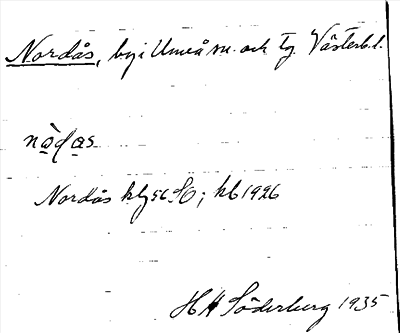 Nordås, by i Umeå sn. och tg. Västerb. l.
nò̱ḍa̱s
Nordås klg 56 SO; kb 1926
H H Söderberg 1935